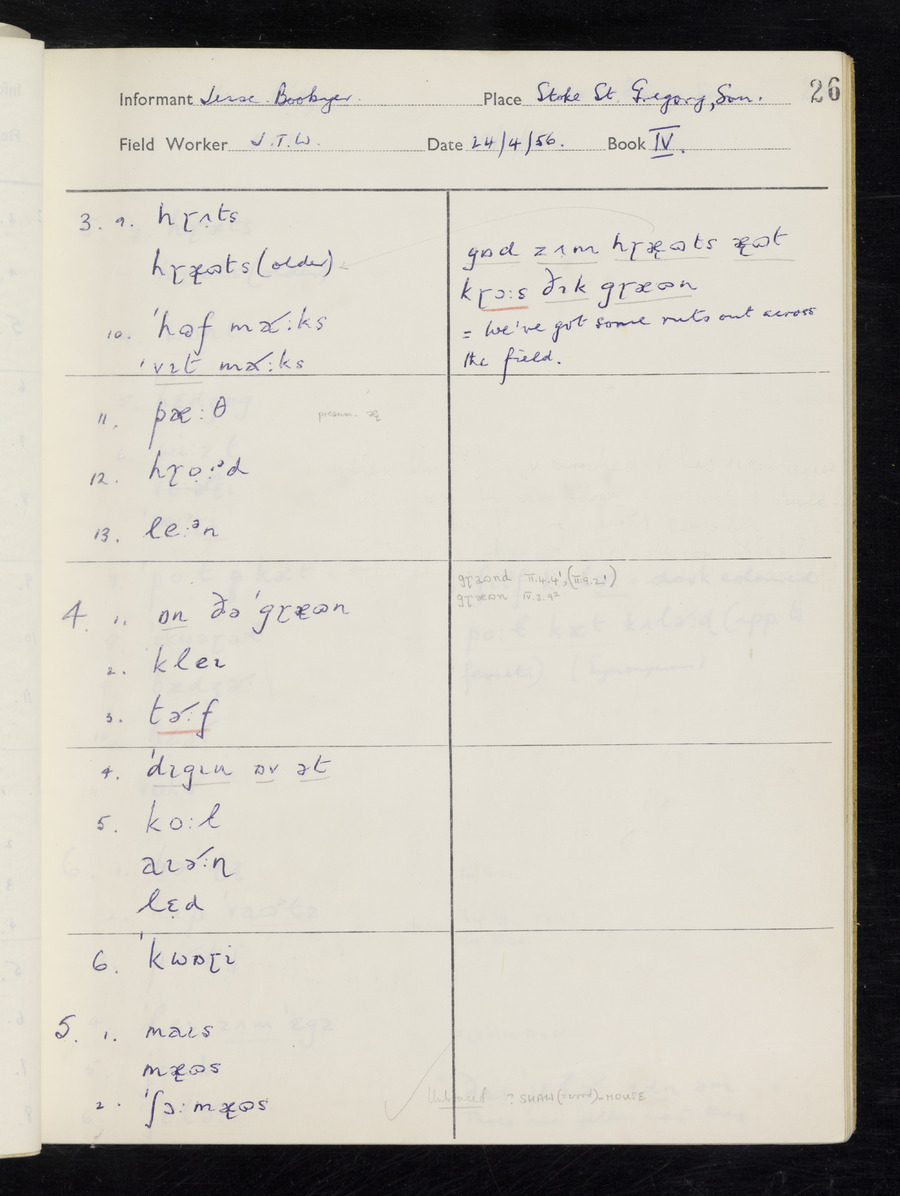 26
Informant Jesse Boobyer. Place Stoke St. Gregory, Som.
Field Worker J.T.W. Date 24/4/56. Book IV.
3. 9. hɽʌts
hɽæ̨ɷts (older)
10. ˈhɷf mə́:ks
ˈvɪt mə́:ks
11. pæ:θ
12. hɽo̜:ᵊd
13. le:ᵊn
4. 1. ɒn ðə ˈgɽæɷn
2. kleɪ
3. tə́:f
4. ˈdɪgɪn ɒv ət
5. ko:l
aɪə́:n
lɛ̜d
6. ˈkwɒɽi
5. 1. maɪs
mæ̨ɷs
2. ˈʃɔ:mæ̨ɷs
gɒd zʌm hɽæ̨ɷts æ̨ɷt
kɽɔ:s ðɪk gɽæɷn
= We've got some ruts out across
the field.
presum. æ̨
gɽæɷnd II.4.4¹, (II.9.2¹)
gɽæɷn IV.3.9²
? SHAW (=wood)-MOUSE